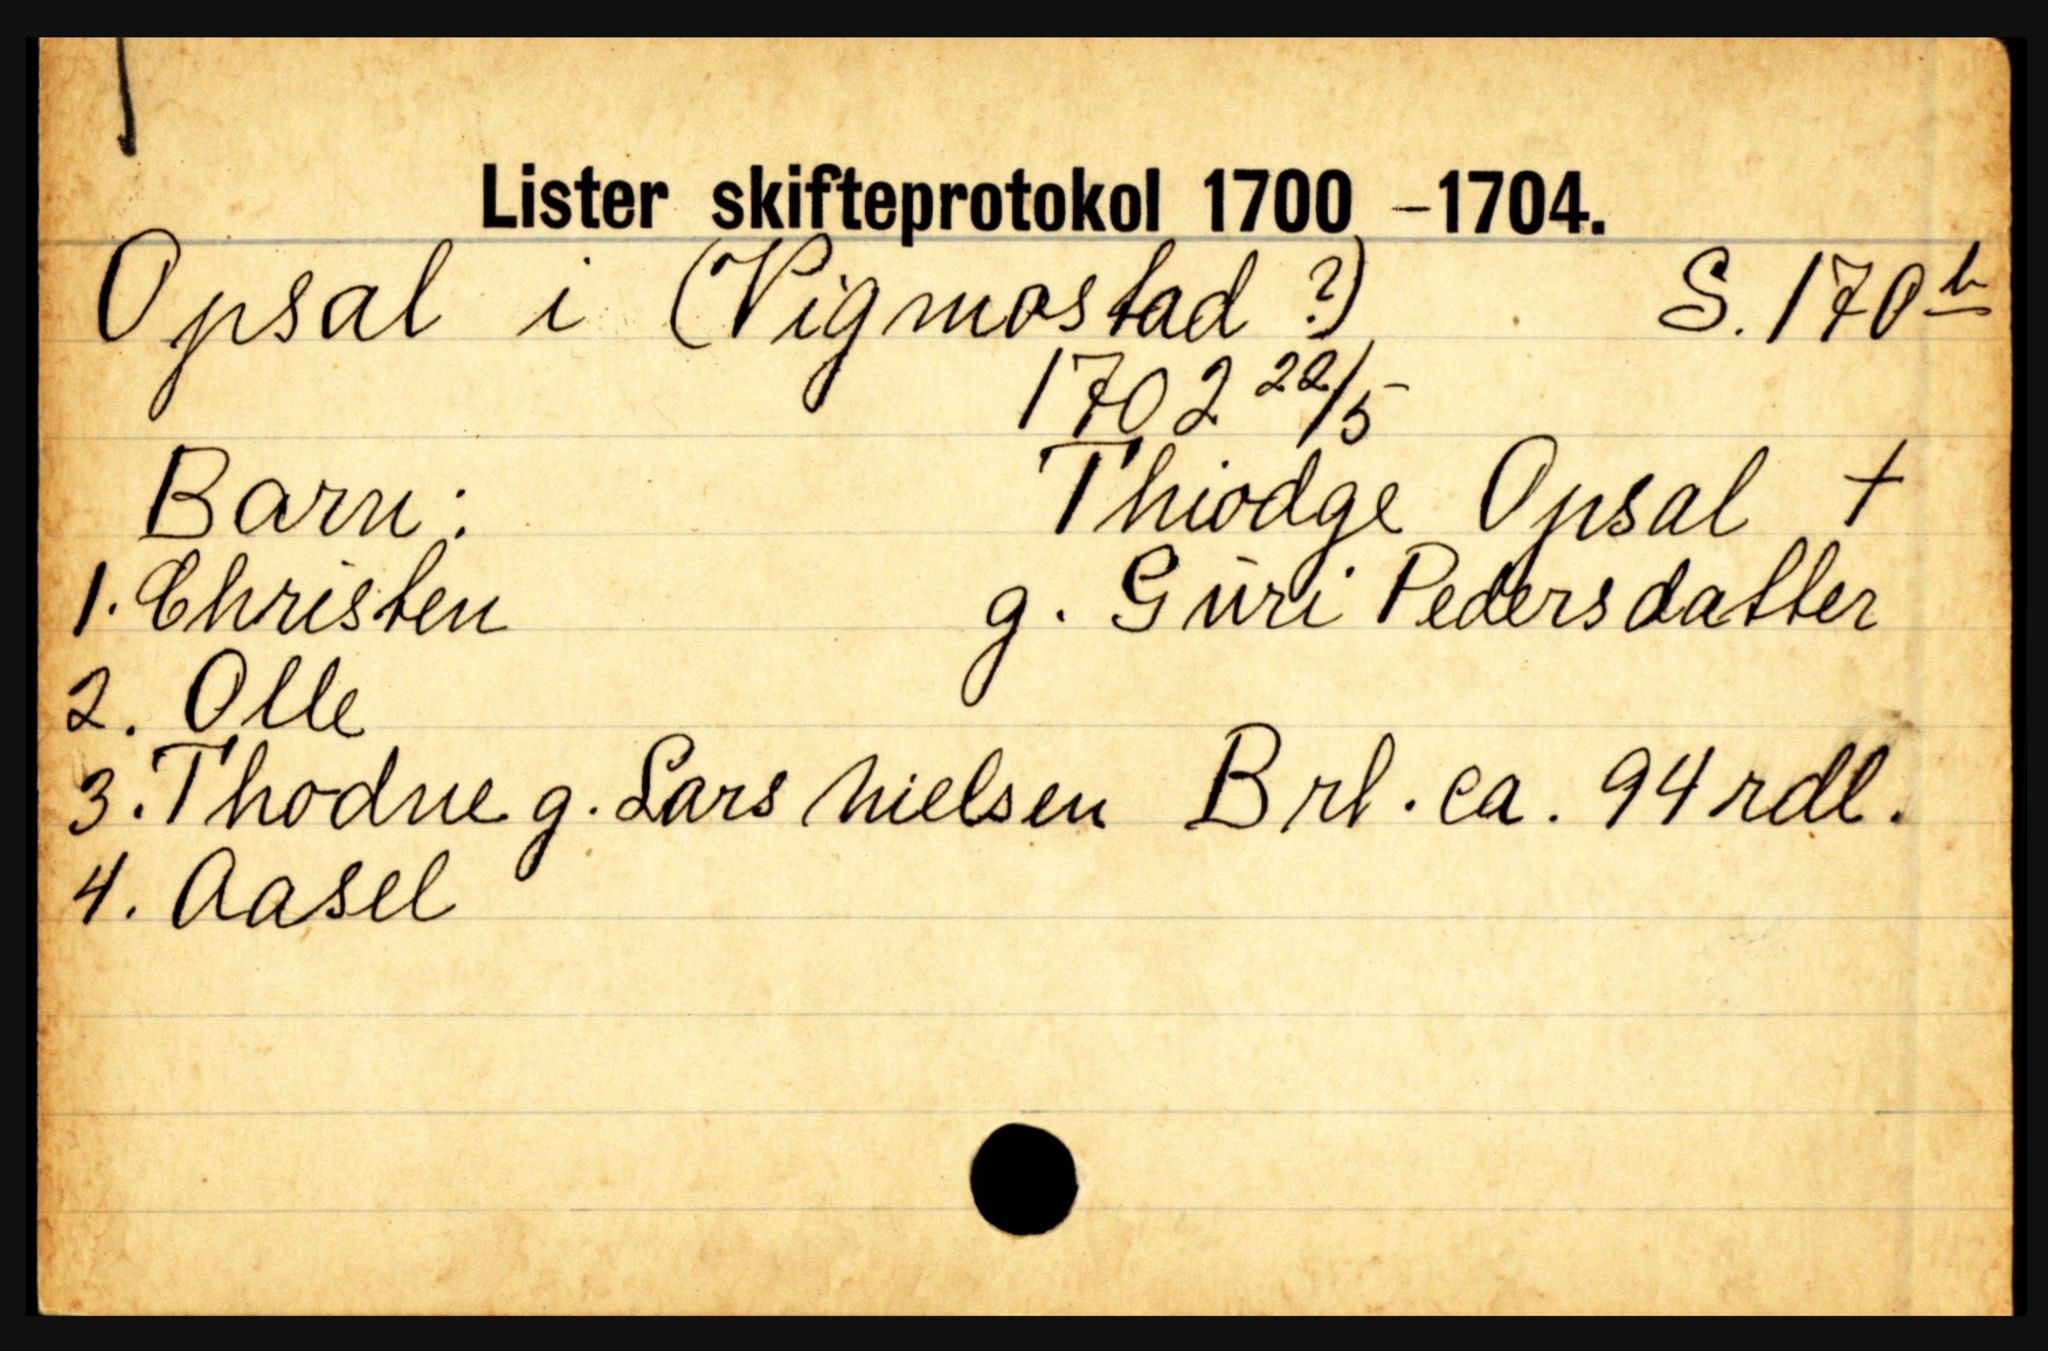 Lister skifteprotokol 1700 -1704.
Opsal i (Vigmostad ?) S. 170 b
1702 22/5
Barn: Thiodge Opsal +
1. Christen g. Guri Pedersdatter
2. Olle
3. Thodne g. Lars Nielsen Brl. ca. 94 rdl.
4. Aasel